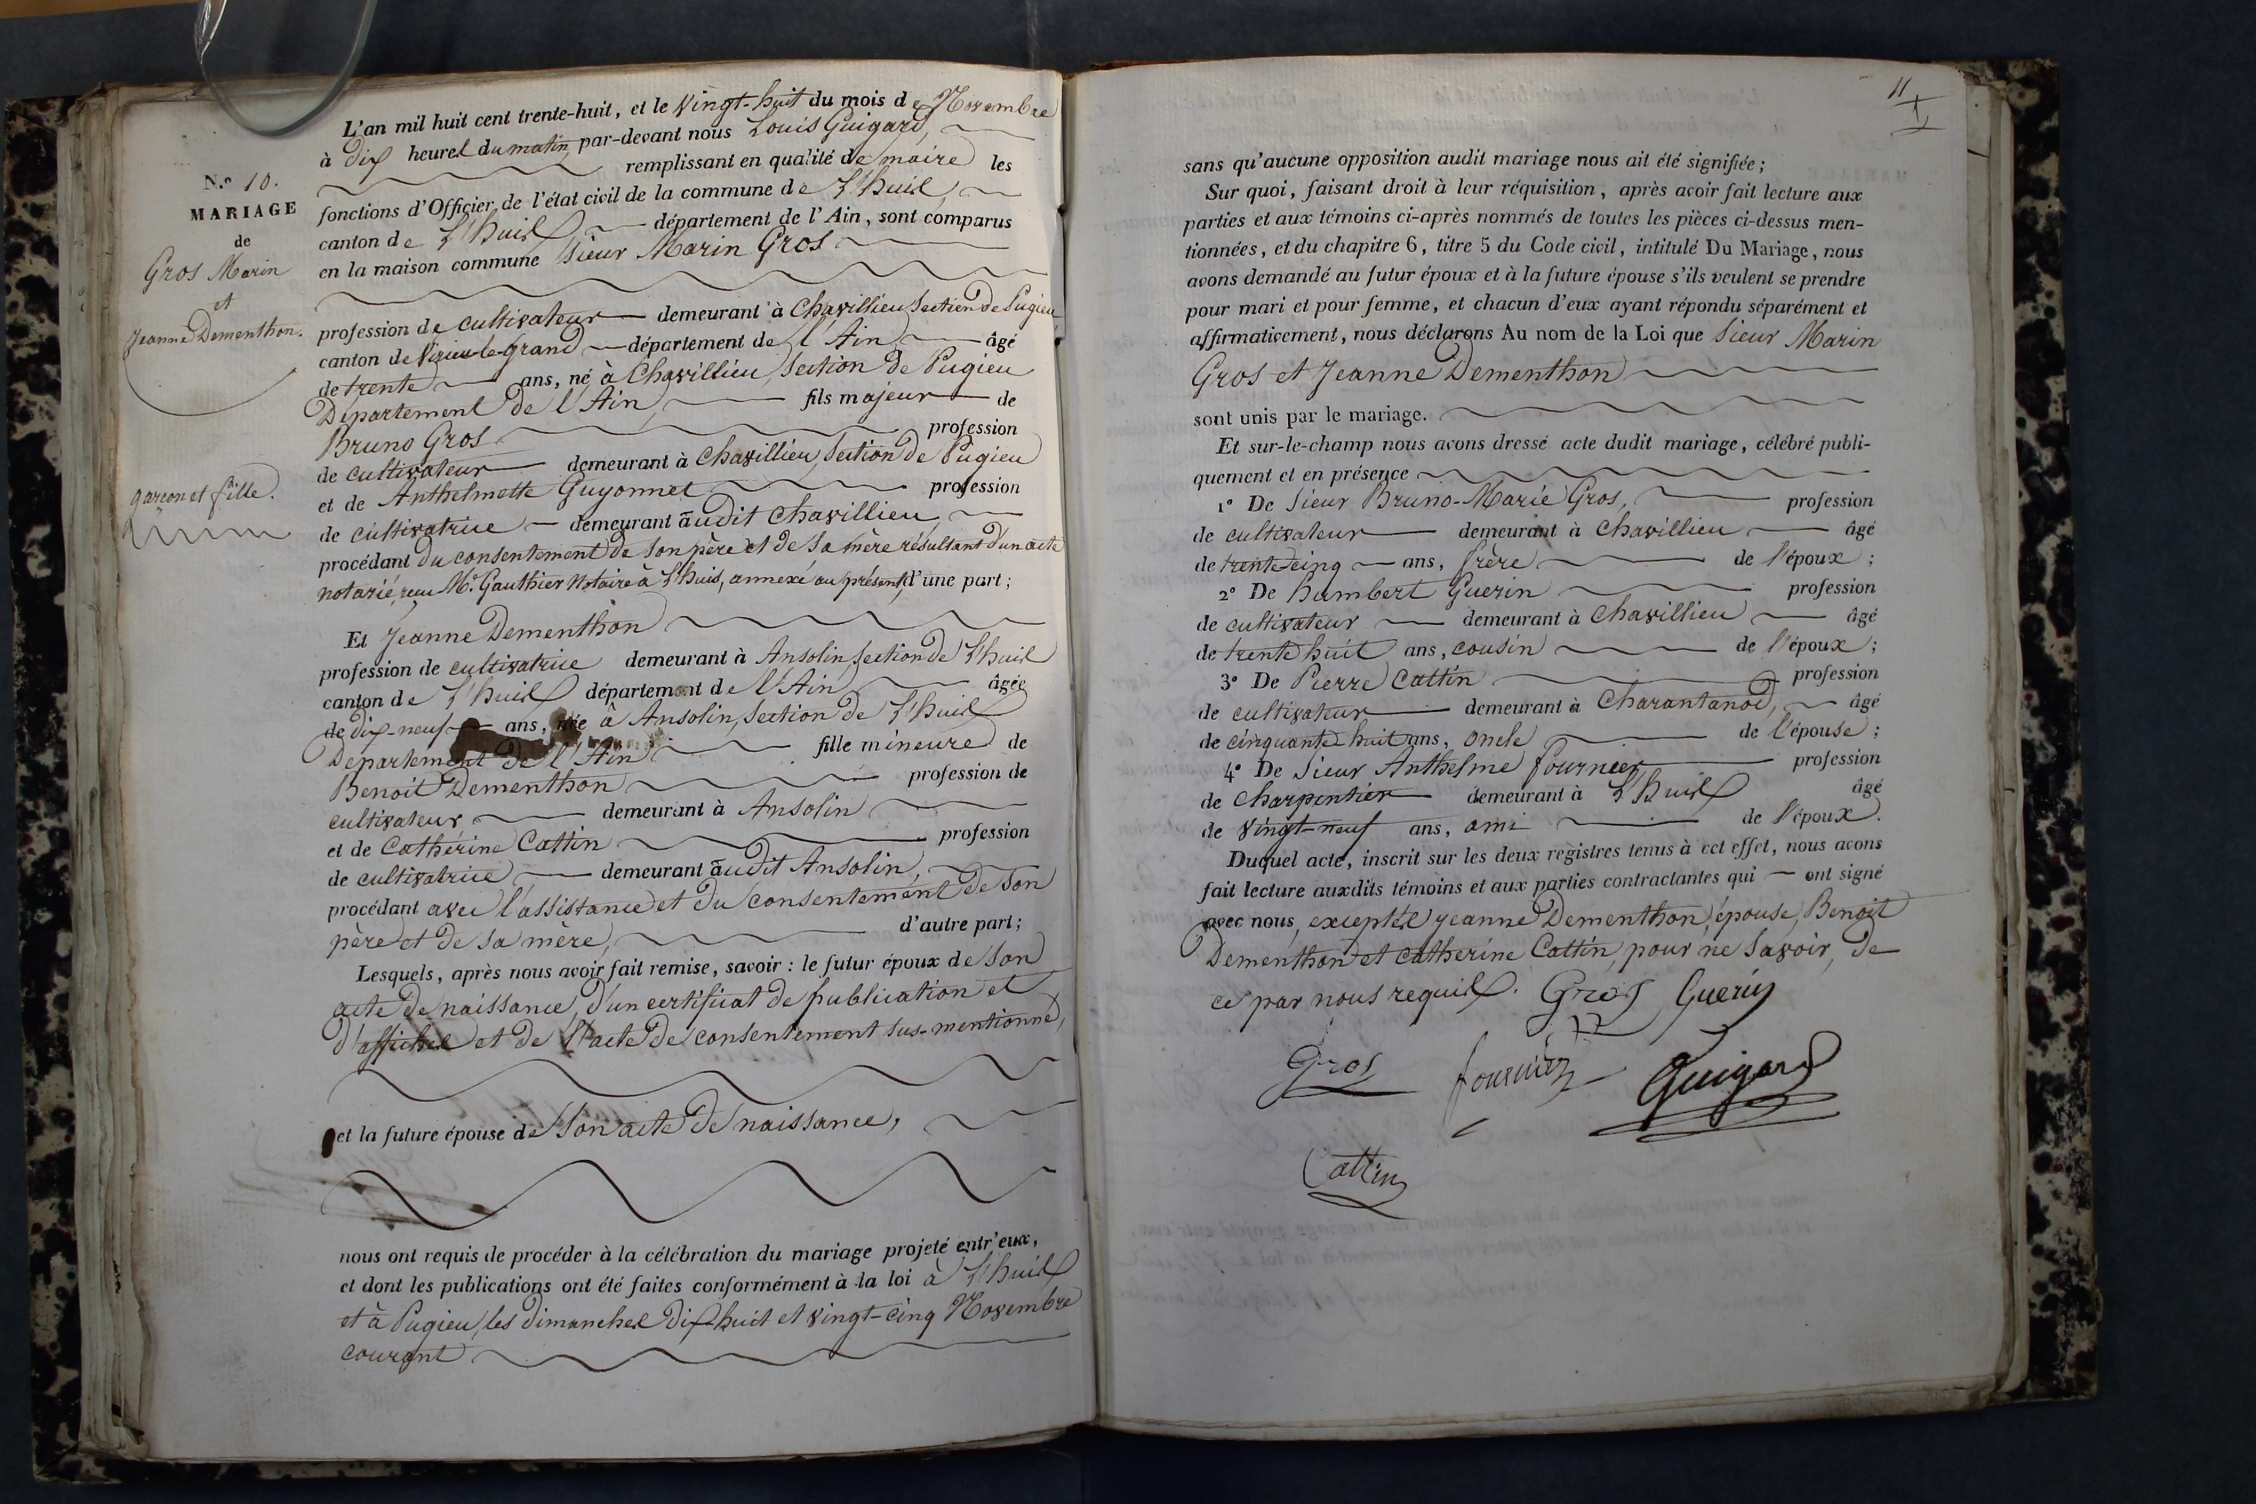 N.º 10.
MARIAGE
de
Gros Marin
et
Jeanne Dementhon.
garcon et fille.
L'an mil huit cent trente-huit, et le Vingt-huit du mois de Novembre
à Dix heures du matin, par-devant nous Louis Guigard,
remplissant en qualité de maire les
fonctions d'Officier de l'état civil de la commune de L'huis,
canton de L'huis département de l'Ain, sont comparus
en la maison commune Sieur Marin Gros
profession de cultivateur demeurant à Chavillieu Section de Pugieu
canton de Virieu-le-grand département de l'Ain âgé
de trente ans, né à Chavillieu, Section de Pugieu
Département de l'Ain, fils majeur de
Bruno Gros profession
de cultivateur demeurant à Chavillieu, Section de Pugieu
et de Anthelmette Guyonnet profession
de cultivatrice demeurant audit Chavillieu,
procédant du consentement de son père et de sa mère résultant d'un acte
notarié, reçu Me. Gauthier Notaire à L'huis, annexé au présent, d'une part;
Et Jeanne Dementhon
profession de cultivatrice demeurant à Ansolin, Section de L'huis
canton de L'huis département de l'Ain âgée
de dix-neuf ans, née à Ansolin, Section de L'huis
Département de l'Ain fille mineure de
Benoit Dementhon profession de
cultivateur demeurant à Ansolin
et de Catherine Cattin profession
de cultivatrice demeurant audit Ansolin,
procédant avec l'assistance et du consentement de son
père et de sa mère, d'autre part;
Lesquels, après nous avoir fait remise, savoir: le futur époux de Son
acte de naissance, d'un certificat de publication et
d'affiches et de l'acte de consentement sus-mentionné,
et la future épouse de Son acte de naissance,
nous ont requis de procéder à la célébration du mariage projeté entr'eux,
et dont les publications ont été faites conformément à la loi à L'huis
et à Pugieu, les dimanches Dix-huit et vingt-cinq Novembre
courant
11
sans qu'aucune opposition audit mariage nous ait été signifiée;
Sur quoi, faisant droit à leur réquisition, après avoir fait lecture aux
parties et aux témoins ci-après nommés de toutes les pièces ci-dessus men-
tionnées, et du chapitre 6, titre 5 du Code civil, intitulé Du Mariage, nous
avons demandé au futur époux et à la future épouse s'ils veulent se prendre
pour mari et pour femme, et chacun d'eux ayant répondu séparément et
affirmativement, nous déclarons Au nom de la Loi que Sieur Marin
Gros et Jeanne Dementhon
sont unis par le mariage.
Et sur-le-champ nous avons dressé acte dudit mariage, célébré publi-
quement et en présence
1º De Sieur Bruno-Marie Gros, profession
de cultivateur demeurant à Chavillieu âgé
de trente-cinq ans, frère de l'époux;
2º De humbert Guerin profession
de cultivateur demeurant à Chavillieu âgé
de trente huit ans, cousin de l'époux;
3º De Pierre Cattin profession
de cultivateur demeurant à Charantanod, âgé
de cinquante huit ans, oncle de l'épouse;
4º De Sieur Anthelme fournier profession
de Charpentier demeurant à L'huis âgé
de Vingt-neuf ans, ami de l'époux.
Duquel acte, inscrit sur les deux registres tenus à cet effet, nous avons
fait lecture auxdits témoins et aux parties contractantes qui ont signé
avec nous, exceptés Jeanne Dementhon, épouse, Benoit
Dementhon et Catherine Cattin, pour ne Savoir, de
ce par nous requis. Gros Guerin
Gros fournier Guigard
Cattin